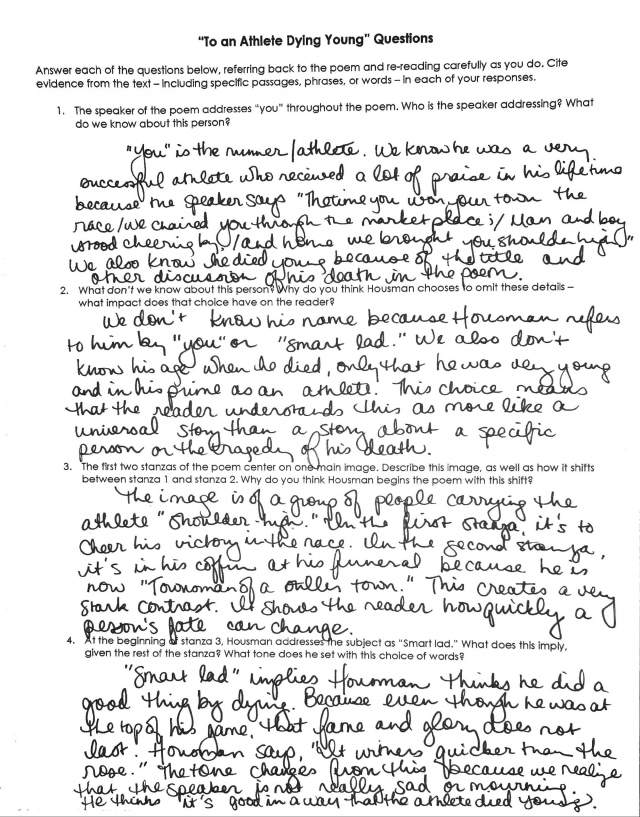 "To an Athlete Dying Young" Questions
Answer each of the questions below, referring back to the poem and re-reading carefully as you do. Cite
evidence from the text – including specific passages, phrases, or words – in each of your responses.
1. The speaker of the poem addresses "you" throughout the poem. Who is the speaker addressing? What
do we know about this person?
"You" is the runner/athlete. We know he was a very
successful athlete who received a lot of praise in his lifetime
because the speaker says "The time you won your town the
race/we chaired you through the market place;/ Man and boy
stood cheering by,/and home we brought you shoulder high."
We also know he died young because of the title and
other discussion of his death in the poem.
2. What don't we know about this person? Why do you think Housman chooses to omit these details –
what impact does that choice have on the reader?
We don't know his name because Housman refers
to him by "you" or "smart lad." We also don't
know his age when he died, only that he was very young
and in his prime as an athlete. This choice means
that the reader understands this as more like a
universal story than a story about a specific
person or the tragedy of his death.
3. The first two stanzas of the poem center on one main image. Describe this image, as well as how it shifts
between stanza 1 and stanza 2. Why do you think Housman begins the poem with this shift?
The image is of a group of people carrying the
athlete "shoulder-high." In the first stanza, it's to
cheer his victory in the race. In the second stanza,
it's in his coffin at his funeral because he is
now "Townsman of a stiller town." This creates a very
stark contrast. It shows the reader how quickly a
person's fate can change.
4. At the beginning of stanza 3, Housman addresses the subject as "Smart lad." What does this imply,
given the rest of the stanza? What tone does he set with this choice of words?
"Smart lad" implies Housman thinks he did a
good thing by dying. Because even though he was at
the top of his game, that fame and glory does not
last. Housman says, "It withers quicker than the
rose." The tone changes from this because we realize
that the speaker is not really sad or mourning.
He thinks it's good in a way that the athlete died young.